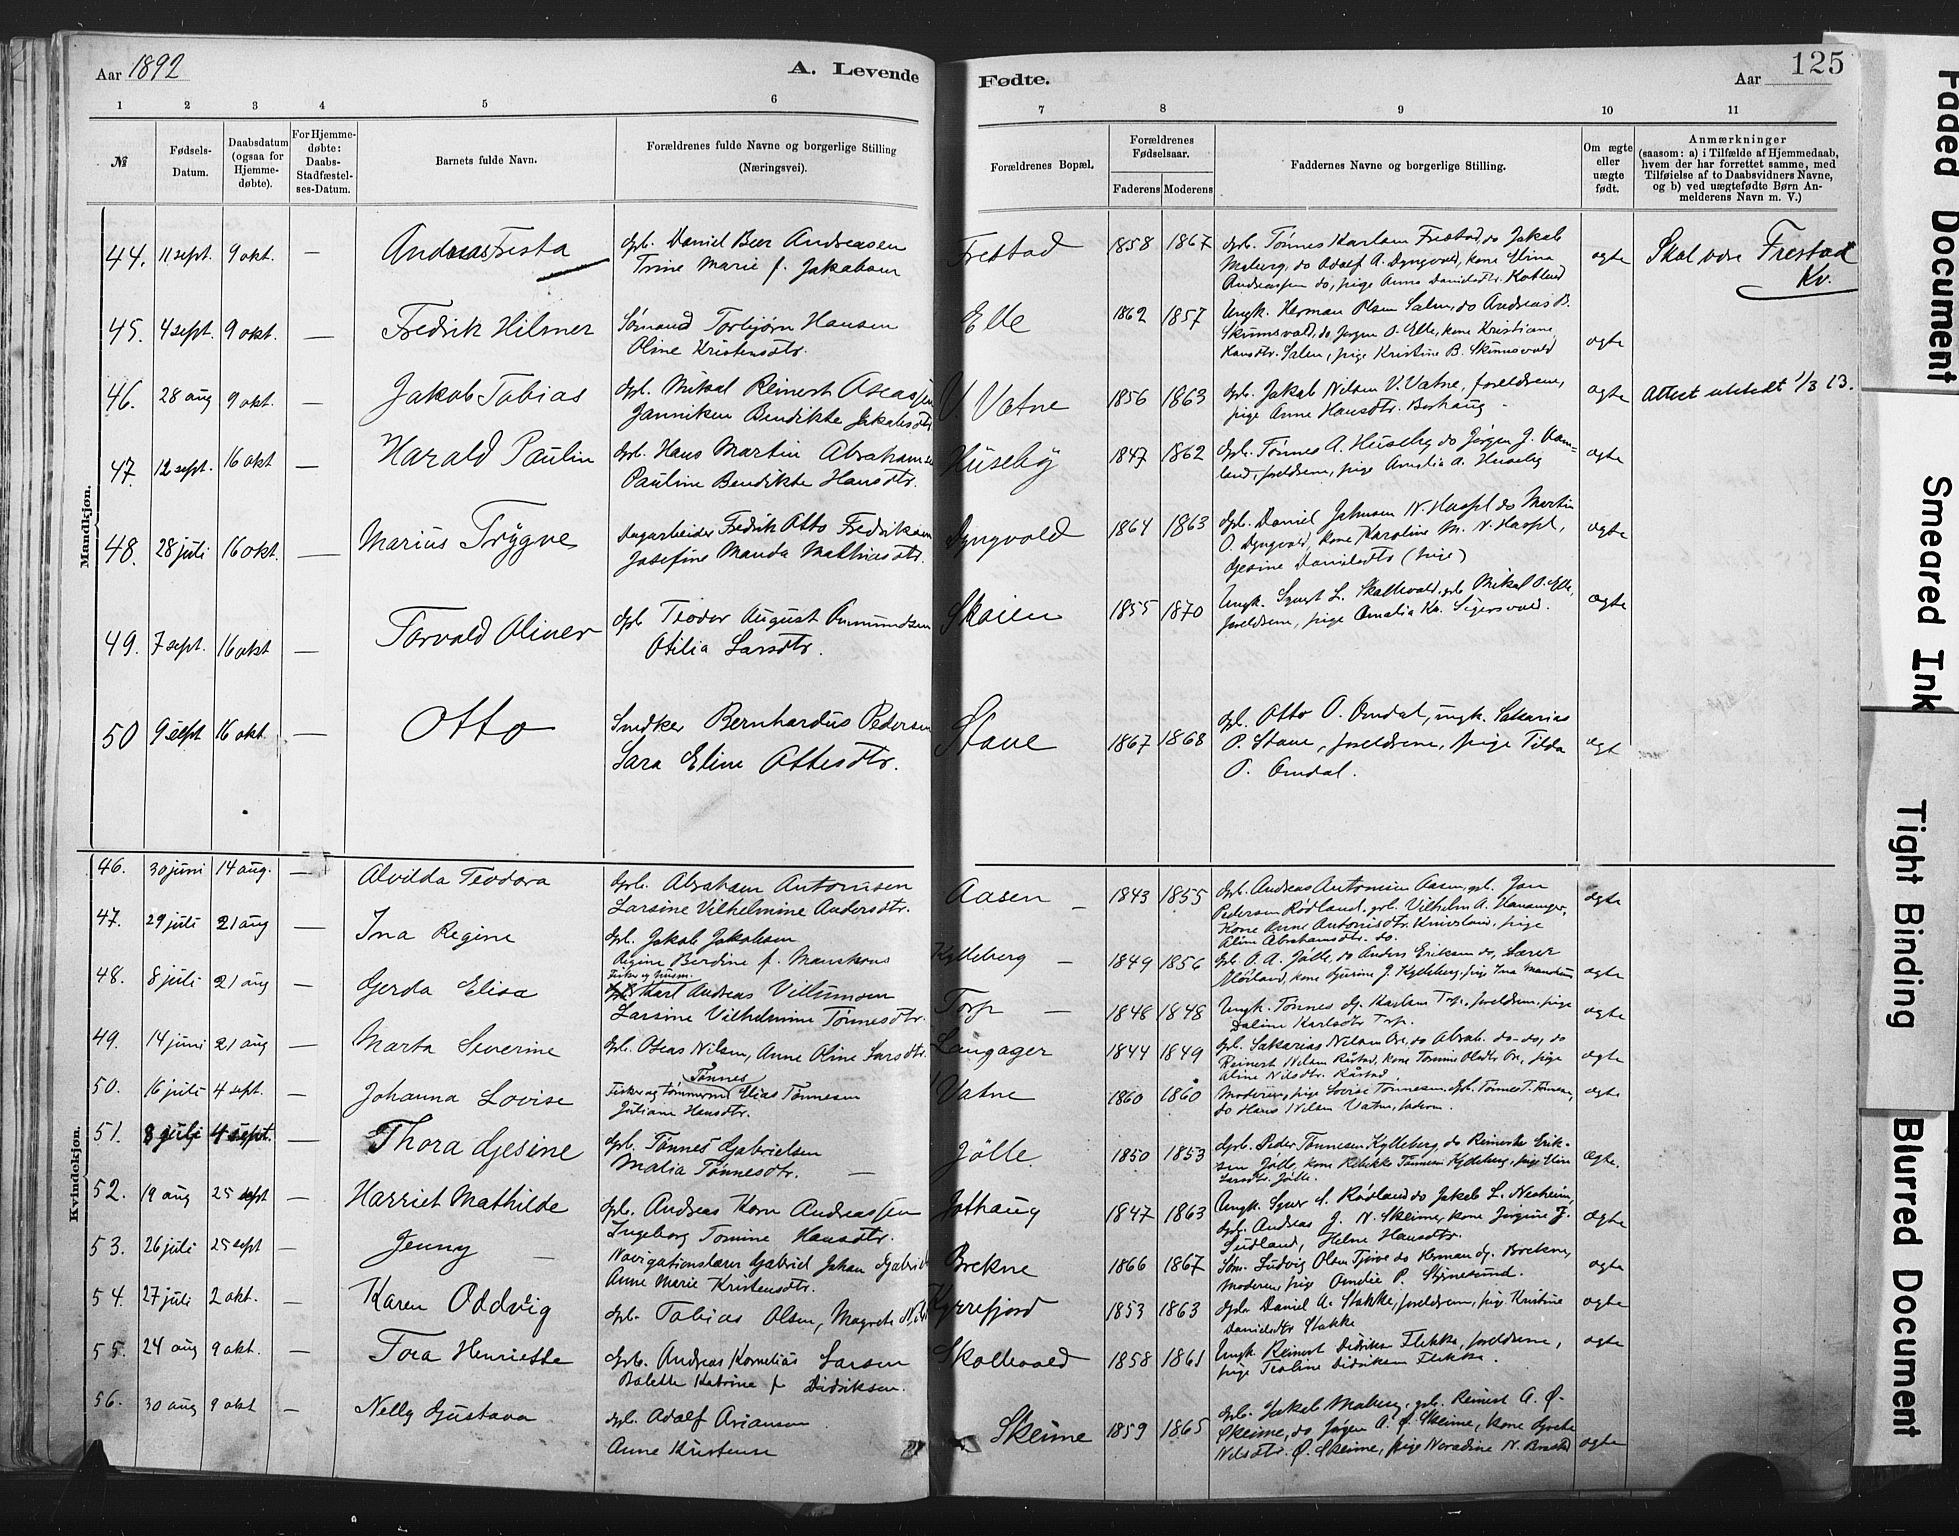 Aar 1892
A. Levende Fødte.
Aar
125
1 2 3 4 5 6 7 8 9 10 11
№
Fødsels-Datum.
Daabsdatum (ogsaa for Hjemme-døbte).
For Hjemme-døbte: Daabs-Stadfæstel-ses-Datum.
Barnets fulde Navn.
Forældrenes fulde Navne og borgerlige Stilling (Næringsvei).
Forældrenes Bopæl.
Forældrenes Fødselsaar.
Faderens Moderens
Faddernes Navne og borgerlige Stilling.
Om ægte eller uægte født.
Anmærkninger
(saasom: a) i Tilfælde af Hjemmedaab, hvem der har forrettet samme, med Tilføielse af to Daabsvidners Navne, og b) ved uægtefødte Børn Anmelderens Navn m. V.)
Mandkjøn.
44. 11 sept. 9 okt. — Andreas Festa
gbr. Daniel Beer Andreasen
Trine Marie f. Jakobsen
Frestad 1858 1867
gbr. Tønnes Karlsen Frestad, do Jakob
Moberg, do Adolf A. Dyngvold, kone Elina
Andreassen do, pige Anna Danielsdtr. Kotland
ægte
Skal være Frestad
Kv.
45. 4 sept. 9 okt. — Fredrik Hilmer
Sømand Torbjørn Hansen
Oline Kristensdtr.
Elle 1862 1857
Ungk. Herman Olsen Salen, do Andreas B.
Skumsvold, do Jørgen O. Elle, kone Kristiane
Hansdtr. Salen, pige Kristine B. Skumsvold
ægte
46. 28 aug 9 okt. — Jakob Tobias
gbr. Mikal Reinert Aseassen
Janniken Bendikte Jakobsdtr
V Vatne 1856 1863
gbr. Jakob Nilsen V. Vatne, foreldrene,
pige Anne Hansdtr. Borhaug
ægte
Attest utstedt 1/3 13.
47. 12 sept. 16 okt — Harald Paulin
gbr. Hans Martin Abrahamsen
Pauline Bendikte Hansdtr.
Huseby 1847 1862
gbr. Tønnes A. Huseby do Jørgen J. Vam-
land, foreldrene, pige Amalia A. Huseby
ægte
48. 28 juli 16 okt. — Marius Trygve
Dagarbeider Fredrik Otto Fredriksen
Josefine Manda Mathiasdtr.
Dyngvold 1864 1863
gbr. Daniel Jahnsen N. Haspl do Martin
O. Dyngvold, kone Karoline M. N. Haspl,
Gjesine Danielsdtr (pige)
ægte
49. 7 sept. 16 okt — Torvald Oliner
gbr Teodor August Ommundsen
Otilia Larsdtr.
Skoien 1855 1870
Ungk. Syvert L. Skollevold, gbr Mikal O. Elle,
foreldrene, pige Amalia K. Sigersvold.
ægte
50 9 sept 16 okt. — Otto
Snedker Bernhardus Pedersen
Sara Eline Ottesdtr.
Stave 1867 1868
gbr. Otto O. Omdal, ungk. Sakarias
P. Stave, foreldrene, pige Tilda
O. Omdal.
ægte
Kvindekjøn.
46. 30 juni 14 aug. — Alvilda Teodora
gbr. Abraham Antonisen
Larsine Vilhelmine Andersdtr.
Aasen — 1843 1855
gbr. Andreas Antonisen Aasen, gbr. Jan
Pedersen Rødland, gbr. Vilhelm A. Hananger,
Kone Anne Antonisdtr. pige
Aline Abrahamsdtr. do.
ægte
47. 29 juli 21 aug — Ina Regine
gbr. Jakob Jakobsen
Regine Berdine f.
Kylleberg — 1849 1856
gbr. A. A. Jølle, do Anders Eriksen do, Lærer
kone Gjurine J. Kylleberg, pige Ina
ægte
48. 8 juli 21 aug — Gerda Elisa
Fisker og husm.
Karl Andreas Villumsen
Larsine Vilhelmine Tønnesdtr.
Torp — 1848 1848
Ungk. Tønnes og Karlsen Torp, foreldrene, pige
Daline Karlsdtr Torp.
ægte
49. 14 juni 21 aug — Marta Severine
gbr. Oseas Nilsen, Anne Oline Larsdtr.
Langager 1844 1849
gbr. Sakarias Nilsen Ore, do Abrah. do-do, do
Reinert Nilsen Råstad, kone Tomine Olsdtr Ore, pige
Aline Nilsdtr. Råstad
ægte
50. 16 juli 4 sept. — Johanna Lovise
Tønnes
Fisker og tømmermd Elias Tønnesen
Juliane Hansdtr.
Vatne 1860 1860
Moderen, pige Lovise Tønnesen, gbr. Tønnes T. Tønnesen,
do Hans Nilsen Vatne, faderen.
ægte
51. 8 juli 4 sept. — Thora Gjesine
gbr. Tønnes Gabrielsen
Malia Tønnesdtr. —
Jølle. 1850 1853
gbr. Peder Tønnesen Kylleberg, do Reinerth Erik-
sen Jølle, kone Rebekke Tønnesen Kylleberg, pige Elen
Larsdtr. Jølle.
ægte.
52. 19 aug 25 sept — Harriet Mathilde
gbr. Andreas Korn Andreassen
Ingeborg Tomine Hansdtr.
Jothaug 1847 1863
Ungk. Syver S. Rødland, do Jakob L. Nesheim,
gbr. Andreas J. N. Skeime, kone Jørgine J.
Sudland, Helene Hansdtr.
ægte
53. 26 juli 25 sept — Jenny —
Navigationslærer Gabriel Johan Gabriels
Anne Marie Kristensdtr.
Brekne 1866 1867
Stm. Ludvig Olsen Tjøve do Herman G. Brekne,
Moderen, pige Amalie P. Stjernesund.
ægte
54. 27 juli 2 okt. — Karen Oddvig
gbr. Tobias Olsen, Magrete
Kjørrefjord 1853 1863
gbr. Daniel A. Stokke, foreldrene, pige Kristine
Danielsdtr Stokke
ægte
55. 24 aug 9 okt. — Tora Henriette
gbr. Andreas Kornelius Larsen
Bolette Katrine f. Didriksen.
Skollevold 1858 1861
Ungk Reinert Didriksen Flekke, foreldrene,
pige Teoline Didriksen Flekke.
ægte
56. 30 aug 9 okt — Nelly Gustava
gbr. Adolf Ariansen
Anne Kristense
Skeime 1859 1865
gbr. Jakob Moberg, gbr. Reinert A. Ø-
Skeime, do Jørgen A. Ø. Skeime, kone Gjerte
Nilsdtr. Ø. Skeime, pige Noradine N.
ægte
Faded Document
Smeared Ink
Tight Binding
Blurred Document